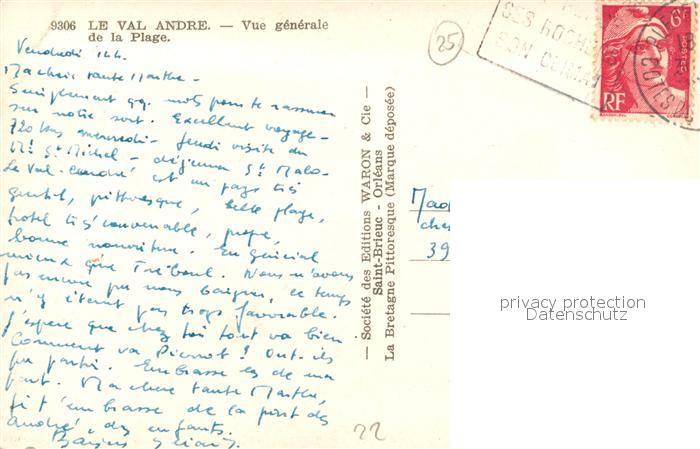 9306 LE VAL ANDRE. — Vue générale
de la Plage.
Vendredi 14h.
Ma chère tante Marthe -
Simplement qq. mots pour te rassurer
sur notre sort. Excellent voyage -
720 kms mercredi - Jeudi visite du
Mt St Michel - déjeuner St Malo -
Le Val-André est un pays très
gentil, pittoresque, belle plage,
hôtel très convenable, propre,
bonne nourriture. En général
mieux que Tréboul. Nous n'avons
pas encore pu nous baigner, ce temps
n'y étant pas trop favorable.
J'espère que chez toi tout va bien.
Comment va Pierrot ? Ont-ils
pu partir. Embrasse les de ma
part. Ma chère tante Marthe,
je t'embrasse de la part des
André, des enfants.
Baisers
— Société des Editions WARON & Cie —
Saint-Brieuc - Orléans
La Bretagne Pittoresque (Marque déposée)
25
SES ROCHERS
SON CLIMAT
6F
POSTES
RF
COTES
Mad
che
39
privacy protection
Datenschutz
22